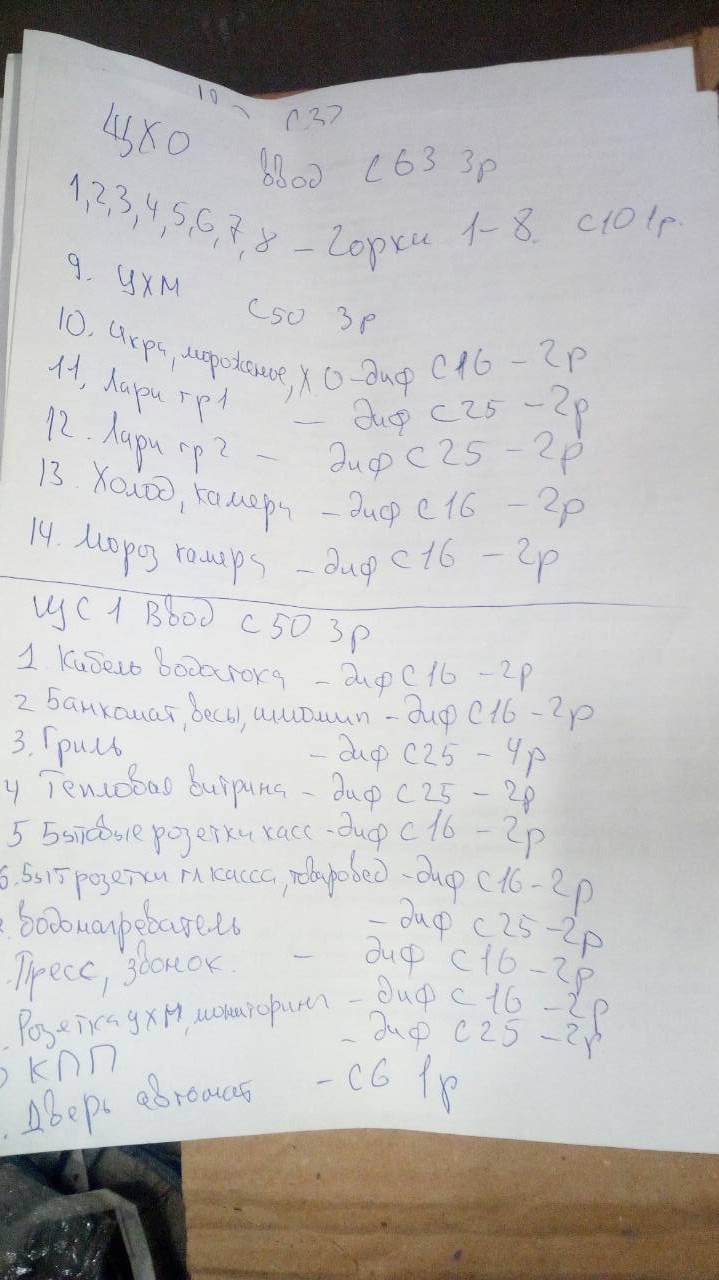 10
ЩХО
Ввод С63 3р
1,2,3,4,5,6,7,8 – Горки 1–8. С10 1р.
9. ЦХМ С50 3р
10. Икра, мороженое, ХО - диф С16 – 2р
11, Лари гр1 – диф С25 – 2р
12. Лари гр2 – диф С25 – 2р
13. Холод, камера – диф С16 – 2р
14. Мороз камера – диф С16 – 2р
ЩС1 Ввод С50 3р
1. Кабель водостока – диф С16 – 2р
2 Банкомат, весы, – диф С16 – 2р
3. Гриль – диф С25 – 4р
4 Тепловая витрина – диф С25 – 2р
5 Бытовые розетки касс - диф С16 – 2р
6. Быт розетки гл касса, товаровед – диф С16 - 2р
Водонагреватель – диф С25 – 2р
Пресс, звонок. – диф С16 – 2р
Розетка ЦХМ, мониторинг – диф С16 – 2р
КПП – диф С25 – 2р
Дверь автомат – С6 1р